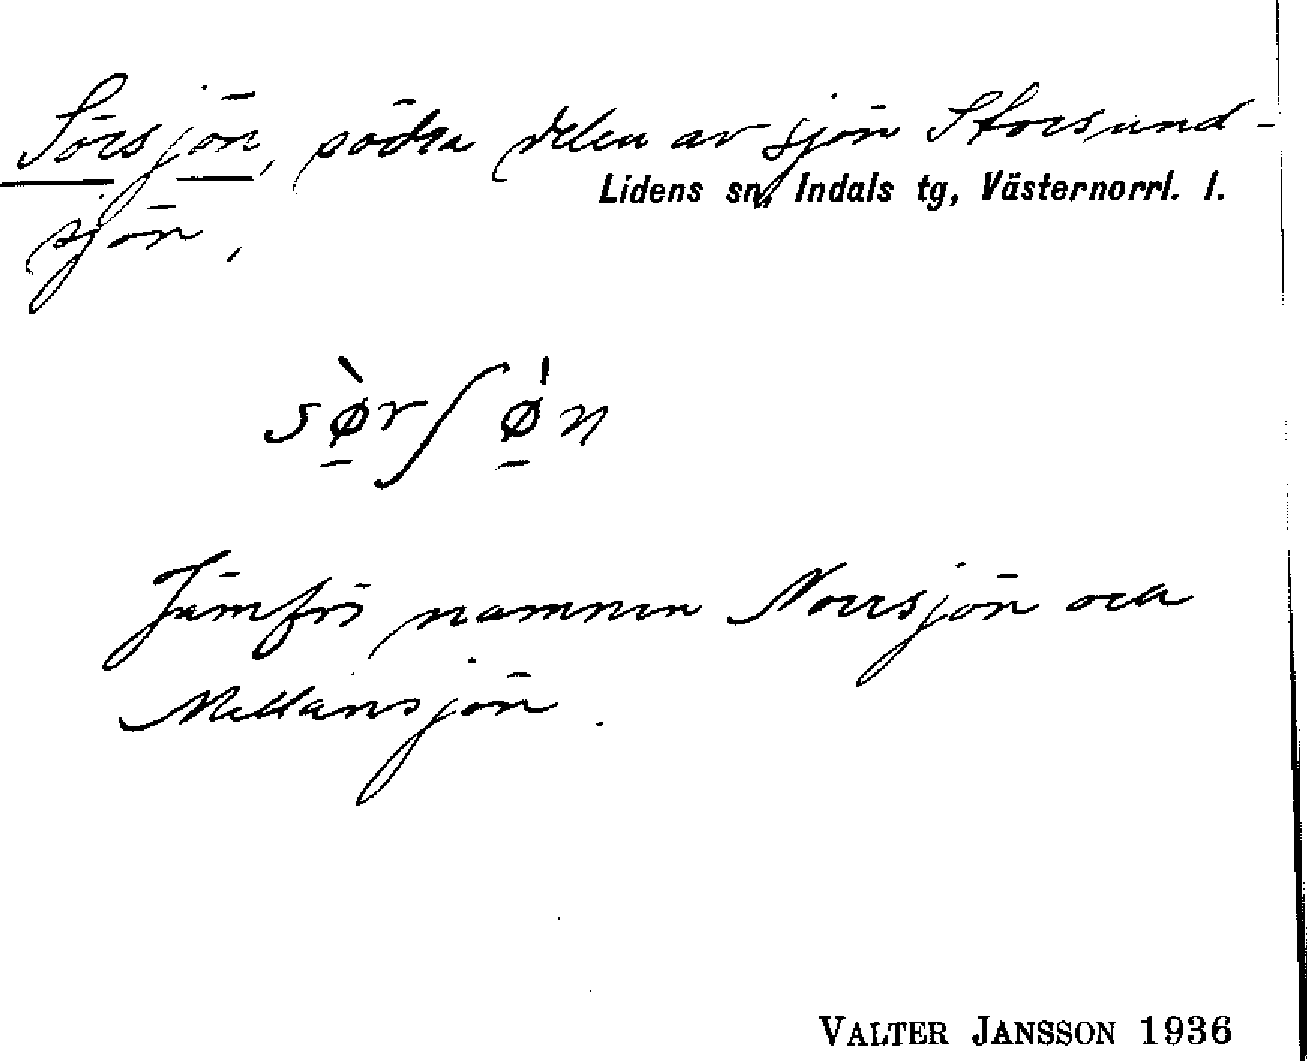 Sörsjön, södra delen av sjön Storsund-
Lidens sn, Indals tg, Västernorrl. l.
sjön.
sø̱̀rʃǿ̱n
Jämför namnen Norrsjön och
Mellansjön.
VALTER JANSSON 1936